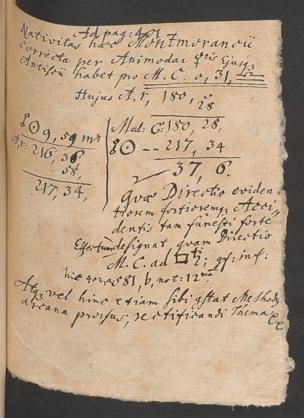 Ad pag: 471
Nativitas haec Montmorancii
correcta per Animodar
Antiscii habet pro M. C. 0, 31,
Hujus A, r, 180, 0
28
8 ☉ 9, 59 m
A, r. 216, 36
58
217, 34,
Med. C: 180, 28,
8 ☉ -- 217, 34
37, 6.
Quae Directio eviden
tiorem fortioremq; Acci
dentis tam funesti forte
Effectum designat, quam Directio
M. C. ad □ ♄; gf: inf:
hic 581, b, not: 12
Atq; vel hinc etiam sibi gstat Methodus
arcana prorsus, rectificandi Themata